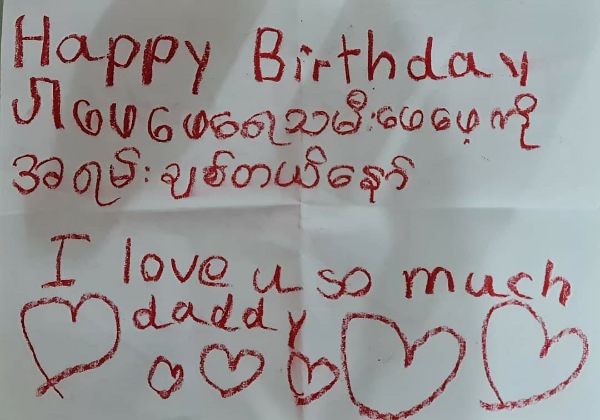 Happy Birthday
ပါဖေဖေရေသမီးဖေဖေ့ကို
အရမ်းချစ်တယ်နော်
I love u so much
daddy